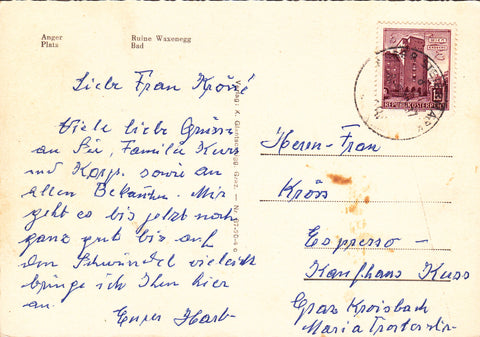 Anger
Platz
Ruine Waxenegg
Bad
Liebe Frau Kröss
Viele liebe Grüsse
an Sie, Familie Kuss
und Karp. sowie an
allen Bekannten. Mir
geht es bis jetzt noch
ganz gut bis auf
den Schwindel vielleicht
bringe ich Ihn hier
an.
Eurer
REPUBLIK ÖSTERREICH
Frau
Kröss
Espresso -
Kaufhaus Kuss
Graz Kroisbach
Maria Trosterstr